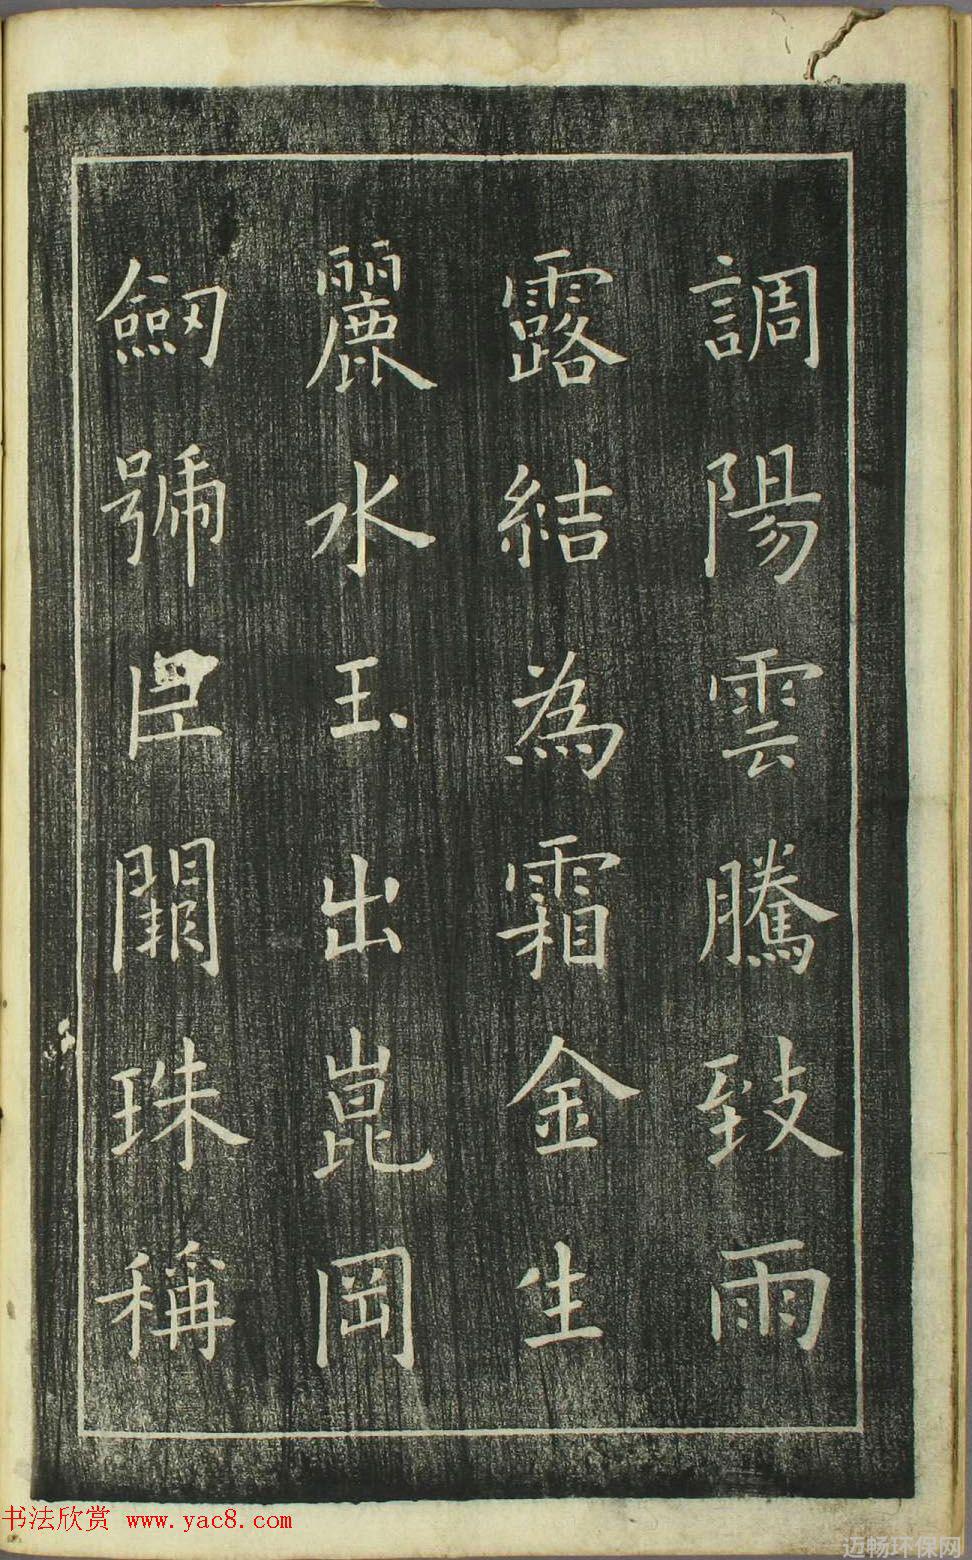 調陽雲騰致雨
露結為霜金生
麗水玉出崑岡
劒號巨闕珠稱
书法欣赏 www.yac8.com
迈畅环保网